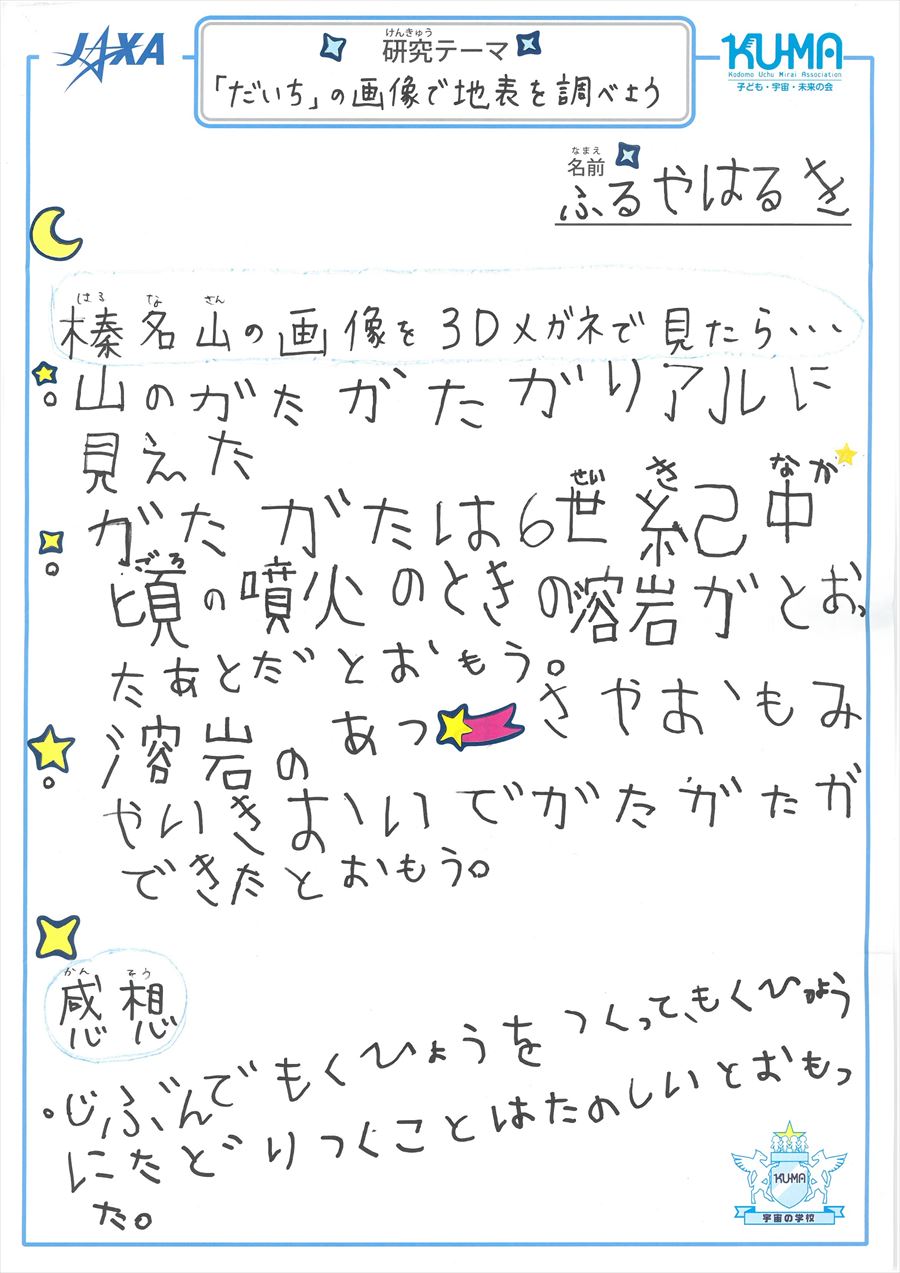 JAXA
けんきゅう
研究テーマ
「だいち」の画像で地表を調べよう
KU-MA
Kodomo Uchu Mirai Association
子ども・宇宙・未来の会
なまえ
名前
ふるやはるき
はるなさん
榛名山の画像を3Dメガネで見たら・・・
。山のがたがたがリアルに
見えた
せいきなか
。がたがたは6世紀中
ごろ
頃の噴火のときの溶岩がとおっ
たあとだとおもう。
。溶岩のあつさやおもみ
やいきおいでがたがたが
できたとおもう。
かんそう
感想
。じぶんでもくひょうをつくって、もくひょう
にたどりつくことはたのしいとおもっ
た。
KU-MA
宇宙の学校